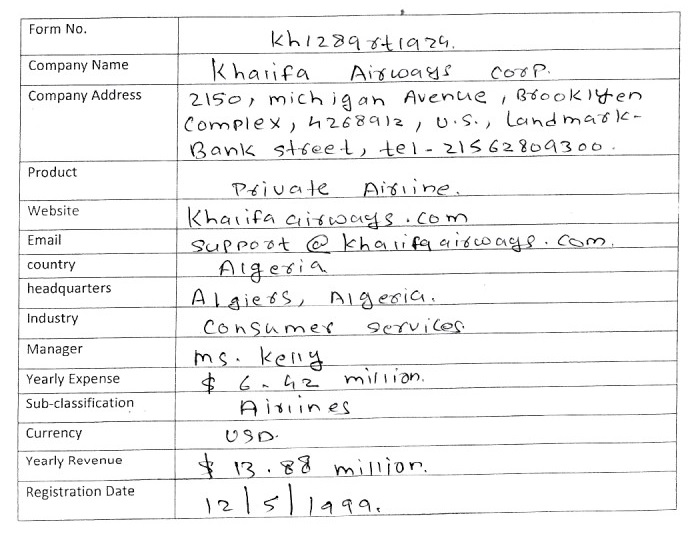 Form No. Kh1289rt1924.
Company Name Khalifa Airways Corp.
Company Address 2150, michigan Avenue, Brooklyen
Complex, 4268912, U.S., Landmark-
Bank street, tel - 21562809300.
Product Private Airline.
Website Khalifaairways.com
Email support@khalifaairways.com.
country Algeria
headquarters Algiers, Algeria.
Industry Consumer services.
Manager ms. Kelly
Yearly Expense $ 6.42 million.
Sub-classification Airlines
Currency USD.
Yearly Revenue $ 13.88 million.
Registration Date 12/5/1999.